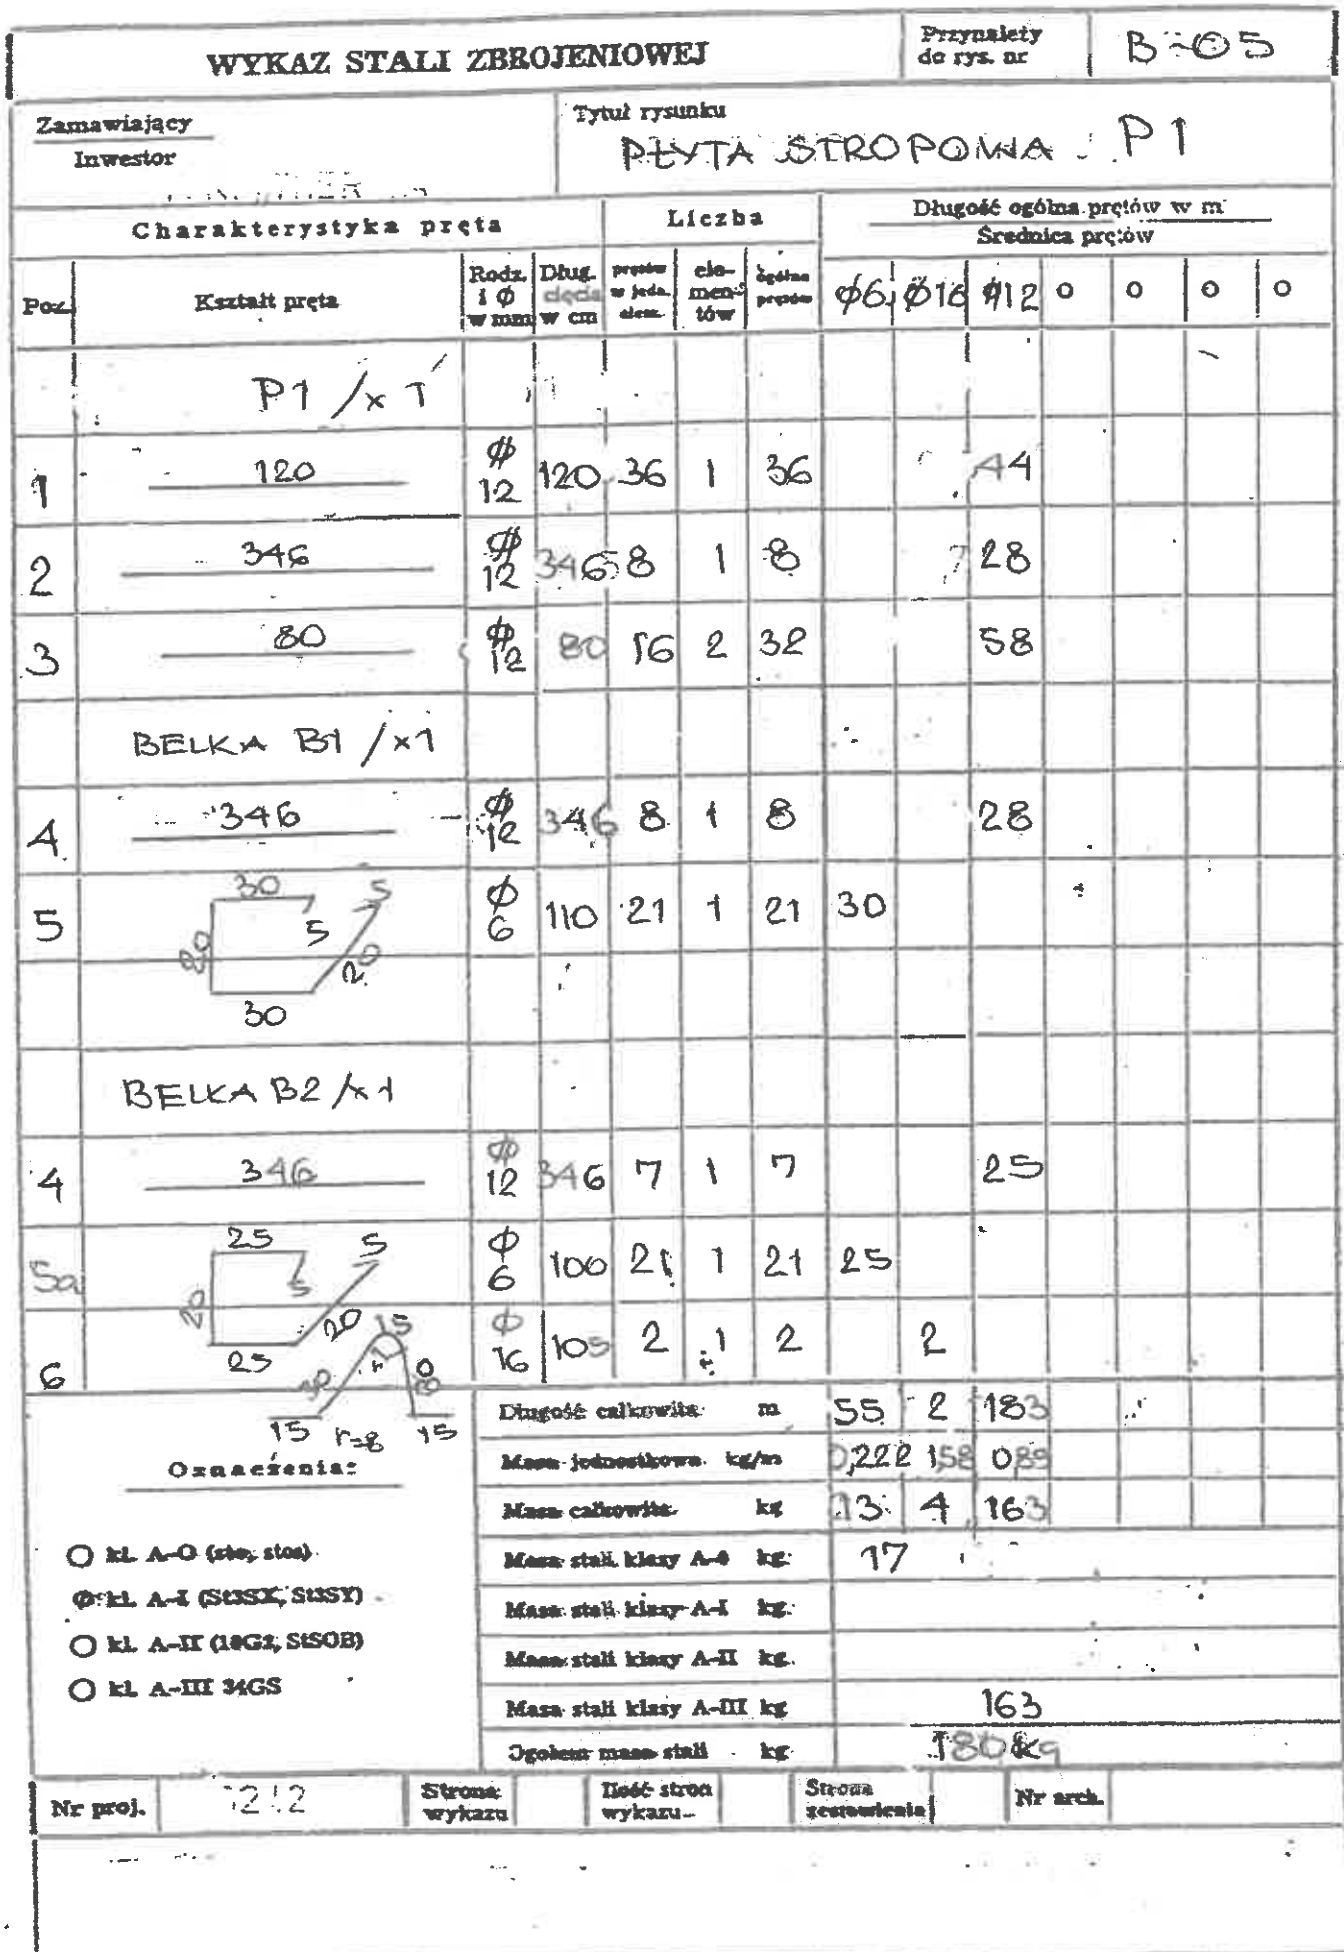 WYKAZ STALI ZBROJENIOWEJ
Przynależy do rys. nr
B-05
Zamawiający
Inwestor
Tytuł rysunku
PŁYTA STROPOWA P1
Charakterystyka pręta
Liczba
Długość ogólna prętów w m
Średnica prętów
Poz.
Kształt pręta
Rodz. i Ø w mm
Dług. cięcia w cm
prętów w jedn. elem.
elementów
ogólna prętów
Ø6 Ø16 Ø12 O O O O
P1 /x 1
1 120 Ø 12 120 36 1 36 44
2 346 Ø 12 346 8 1 8 28
3 80 Ø 12 80 16 2 32 58
BELKA B1 /x1
4 346 Ø 12 346 8 1 8 28
5 30 5 5 20 20 30 Ø 6 110 21 1 21 30
BELKA B2 /x1
4 346 Ø 12 346 7 1 7 25
5a 25 5 5 20 20 25 Ø 6 100 21 1 21 25
6 15 r 30 15 r=8 15 Ø 16 105 2 1 2 2
Długość całkowita m 55 2 183
Masa jednostkowa kg/m 0,222 1,58 0,89
Masa całkowita kg 13 4 163
Oznaczenia:
O kl. A-O (sto, stos)
Ø kl. A-I (St3SX, St3SY)
O kl. A-II (18G2, St5OB)
O kl. A-III 34GS
Masa stali klasy A-0 kg 17
Masa stali klasy A-I kg.
Masa stali klasy A-II kg.
Masa stali klasy A-III kg 163
Ogółem masa stali kg 180 kg
Nr proj.
Strona wykazu
Ilość stron wykazu
Strona zestawienia
Nr arch.